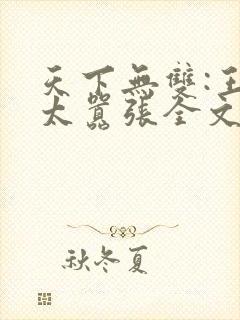 天下無雙:王
太囂張全文
秋冬夏